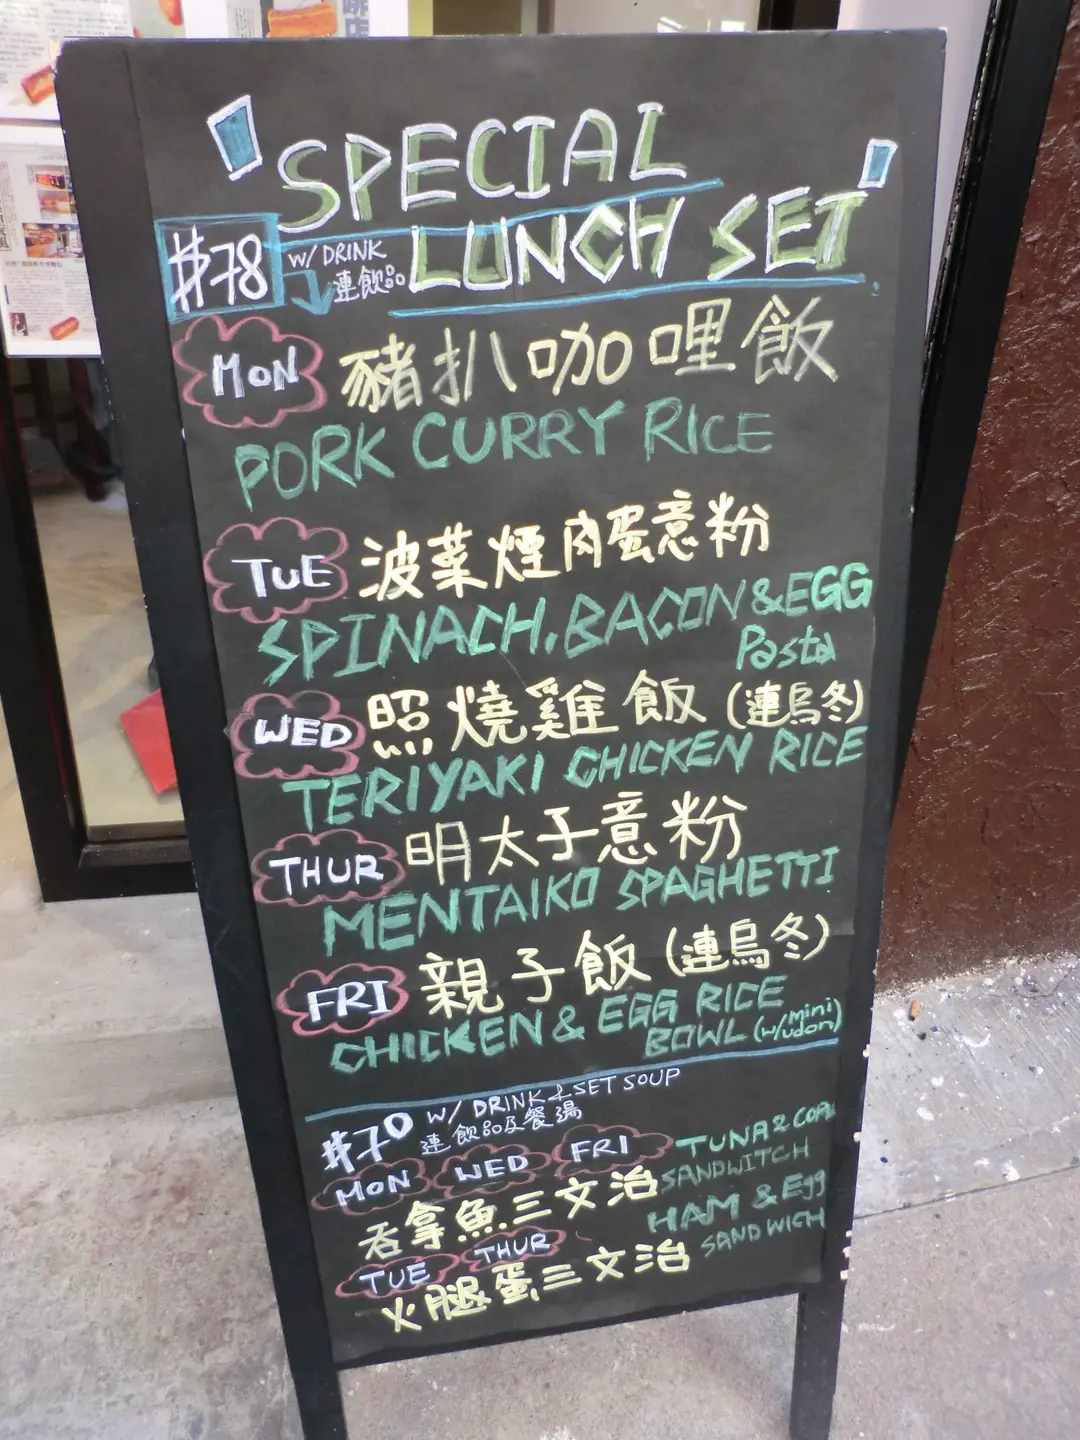 SPECIAL
LUNCH SET
$78 W/ DRINK
連飲品
MON 豬扒咖哩飯
PORK CURRY RICE
TUE 波菜煙肉蛋意粉
SPINACH, BACON & EGG
Pasta
WED 照燒雞飯 (連烏冬)
TERIYAKI CHICKEN RICE
THUR 明太子意粉
MENTAIKO SPAGHETTI
FRI 親子飯 (連烏冬)
CHICKEN & EGG RICE
BOWL (w/mini udon)
$70 W/ DRINK & SET SOUP
連飲品及餐湯
MON WED FRI
吞拿魚三文治
TUNA & CORN
SANDWITCH
TUE THUR
火腿蛋三文治
HAM & Egg
SANDWICH